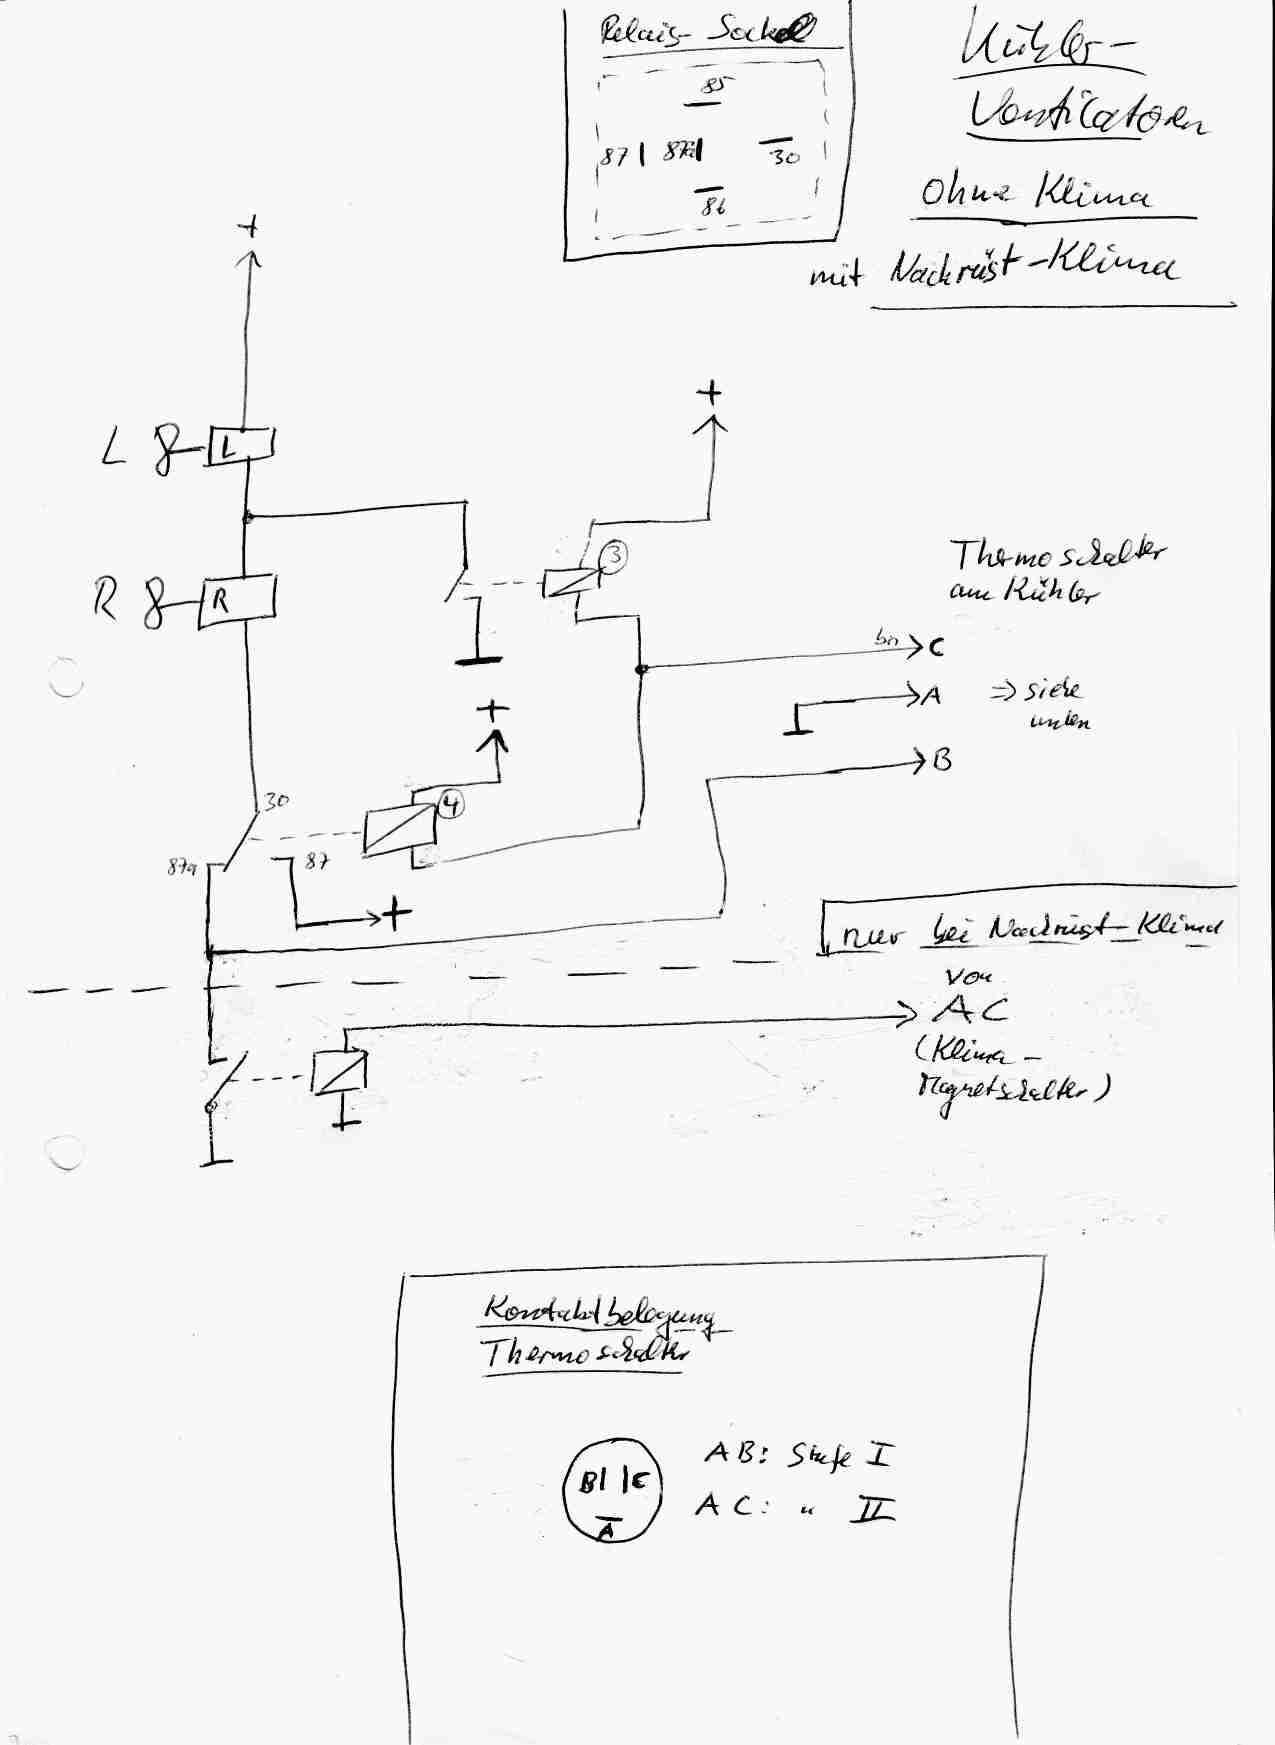 Relais-Sockel
85
87 87a 30
86
Kühler-
Ventilatoren
Ohne Klima
mit Nachrüst-Klima
+
+
L L
3
R R
Thermoschalter
am Kühler
bn C
A => siehe
unten
+
B
30
4
87a 87
+
nur bei Nachrüst-Klima
von
AC
(Klima-
Magnetschalter)
Kontaktbelegung
Thermoschalter
B C
A
AB: Stufe I
AC: " II